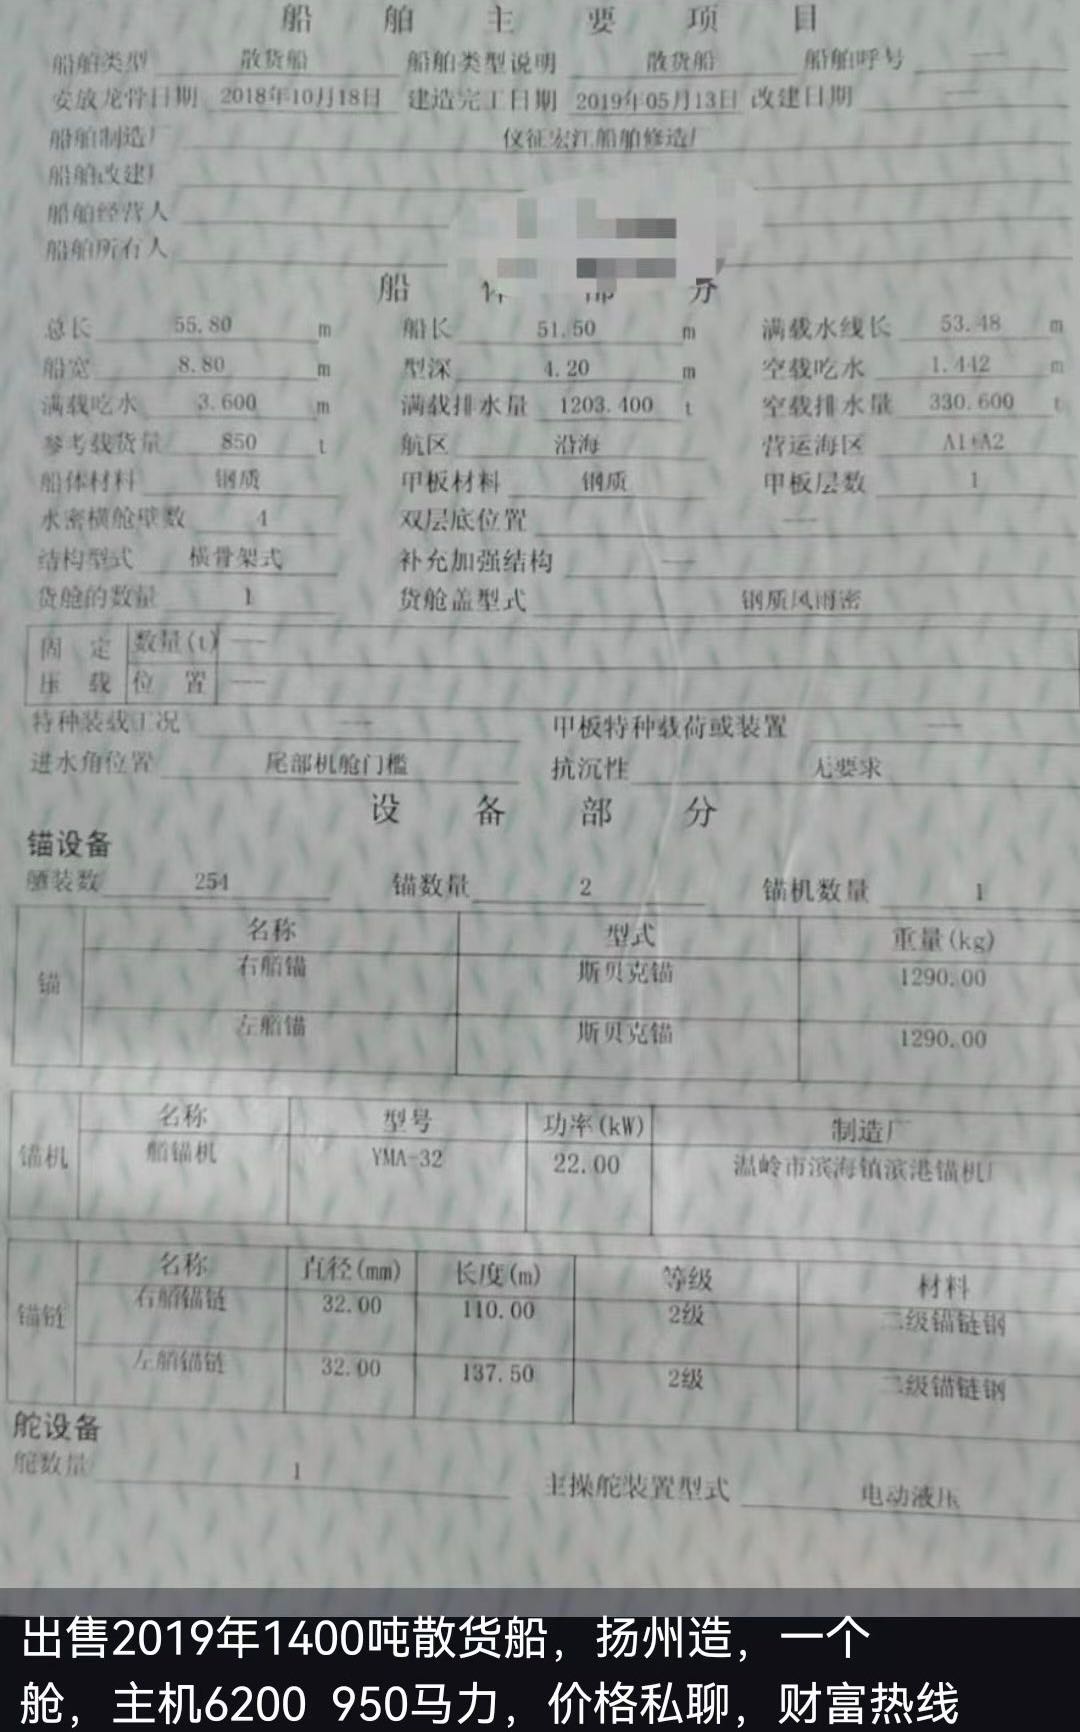 船舶主要项目
船舶类型 散货船 船舶类型说明 散货船 船舶呼号 —
安放龙骨日期 2018年10月18日 建造完工日期 2019年05月13日 改建日期 —
船舶制造厂 仪征宏江船舶修造厂
船舶改建厂
船舶经营人
船舶所有人
船体部分
总长 55.80 m 船长 51.50 m 满载水线长 53.48 m
船宽 8.80 m 型深 4.20 m 空载吃水 1.442 m
满载吃水 3.600 m 满载排水量 1203.400 t 空载排水量 330.600 t
参考载货量 850 t 航区 沿海 营运海区 A1+A2
船体材料 钢质 甲板材料 钢质 甲板层数 1
水密横舱壁数 4 双层底位置 —
结构型式 横骨架式 补充加强结构 —
货舱的数量 1 货舱盖型式 钢质风雨密
固定 数量(t) —
压载 位置 —
特种装载工况 — 甲板特种载荷或装置 —
进水角位置 尾部机舱门槛 抗沉性 无要求
设备部分
锚设备
舾装数 254 锚数量 2 锚机数量 1
名称 型式 重量(kg)
锚 右艏锚 斯贝克锚 1290.00
左艏锚 斯贝克锚 1290.00
名称 型号 功率(kW) 制造厂
锚机 艏锚机 YMA-32 22.00 温岭市滨海镇滨港锚机厂
名称 直径(mm) 长度(m) 等级 材料
锚链 右艏锚链 32.00 110.00 2级 二级锚链钢
左艏锚链 32.00 137.50 2级 二级锚链钢
舵设备
舵数量 1 主操舵装置型式 电动液压
出售2019年1400吨散货船，扬州造，一个
舱，主机6200 950马力，价格私聊，财富热线